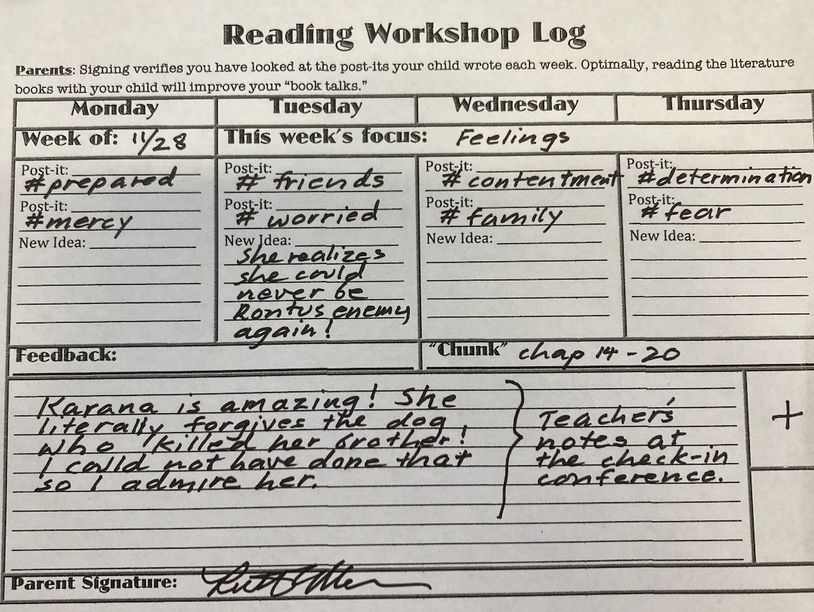 Reading Workshop Log
Parents: Signing verifies you have looked at the post-its your child wrote each week. Optimally, reading the literature
books with your child will improve your “book talks.”
Monday Tuesday Wednesday Thursday
Week of: 11/28 This week's focus: Feelings
Post-it:
#prepared
Post-it:
#mercy
New Idea:
Post-it:
# friends
Post-it:
# worried
New Idea:
She realizes
she could
never be
Rontus enemy
again!
Post-it:
# contentment
Post-it:
# family
New Idea:
Post-it:
#determination
Post-it:
# fear
New Idea:
Feedback:
"Chunk" chap 14-20
Karana is amazing! She
literally forgives the dog
who killed her brother!
I could not have done that
so I admire her.
Teacher's
notes at
the check-in
conference.
+
Parent Signature: